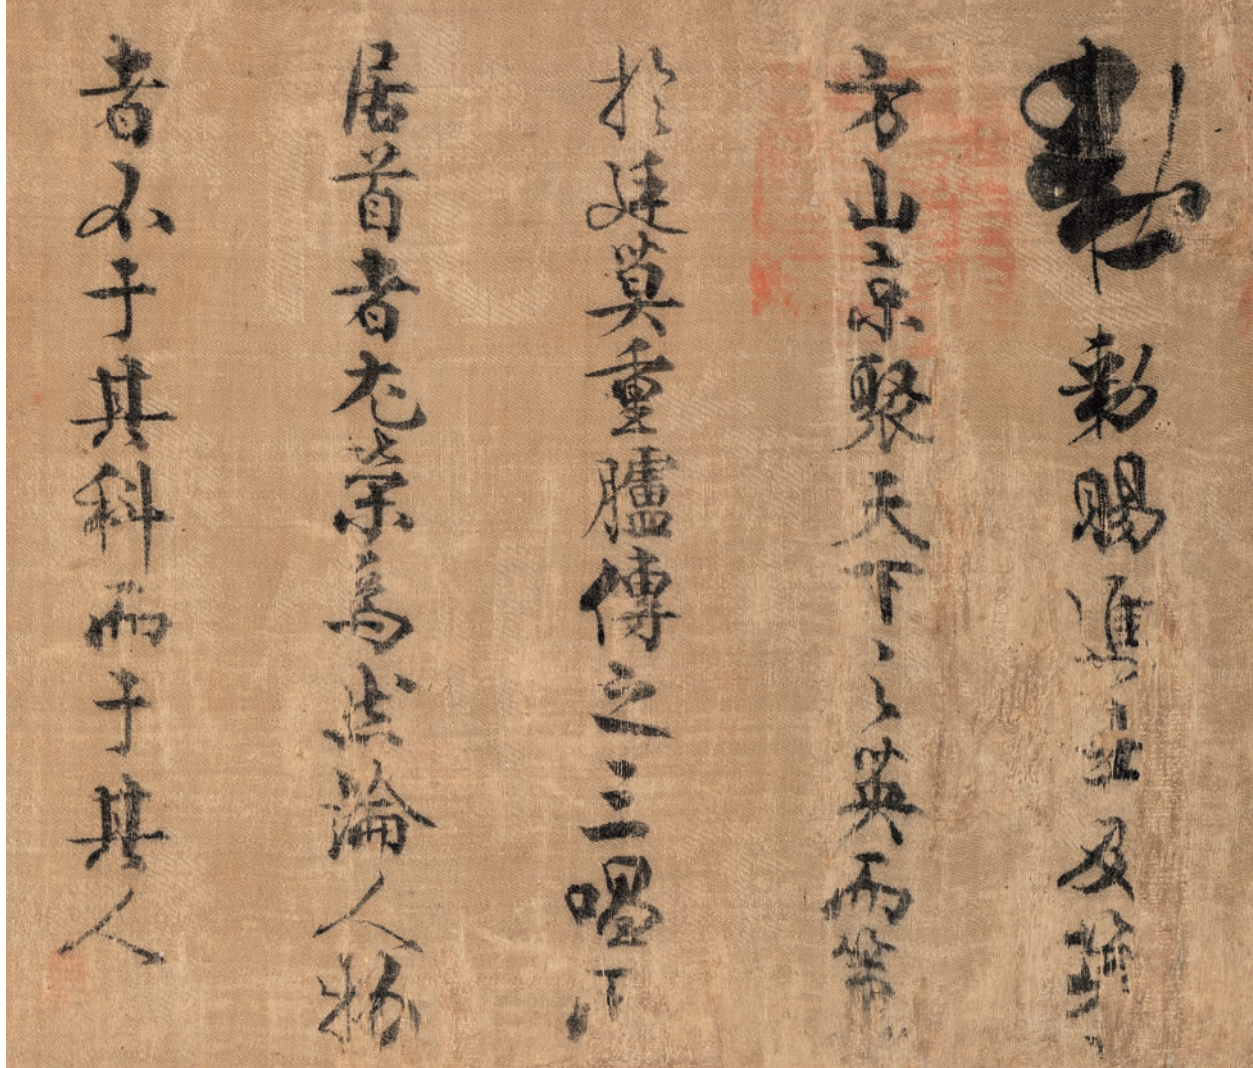 勅賜進士及第
方山京聚天下之英而策
於廷莫重臚傳之三唱而
居首者尤榮焉然論人物
者不于其科而于其人